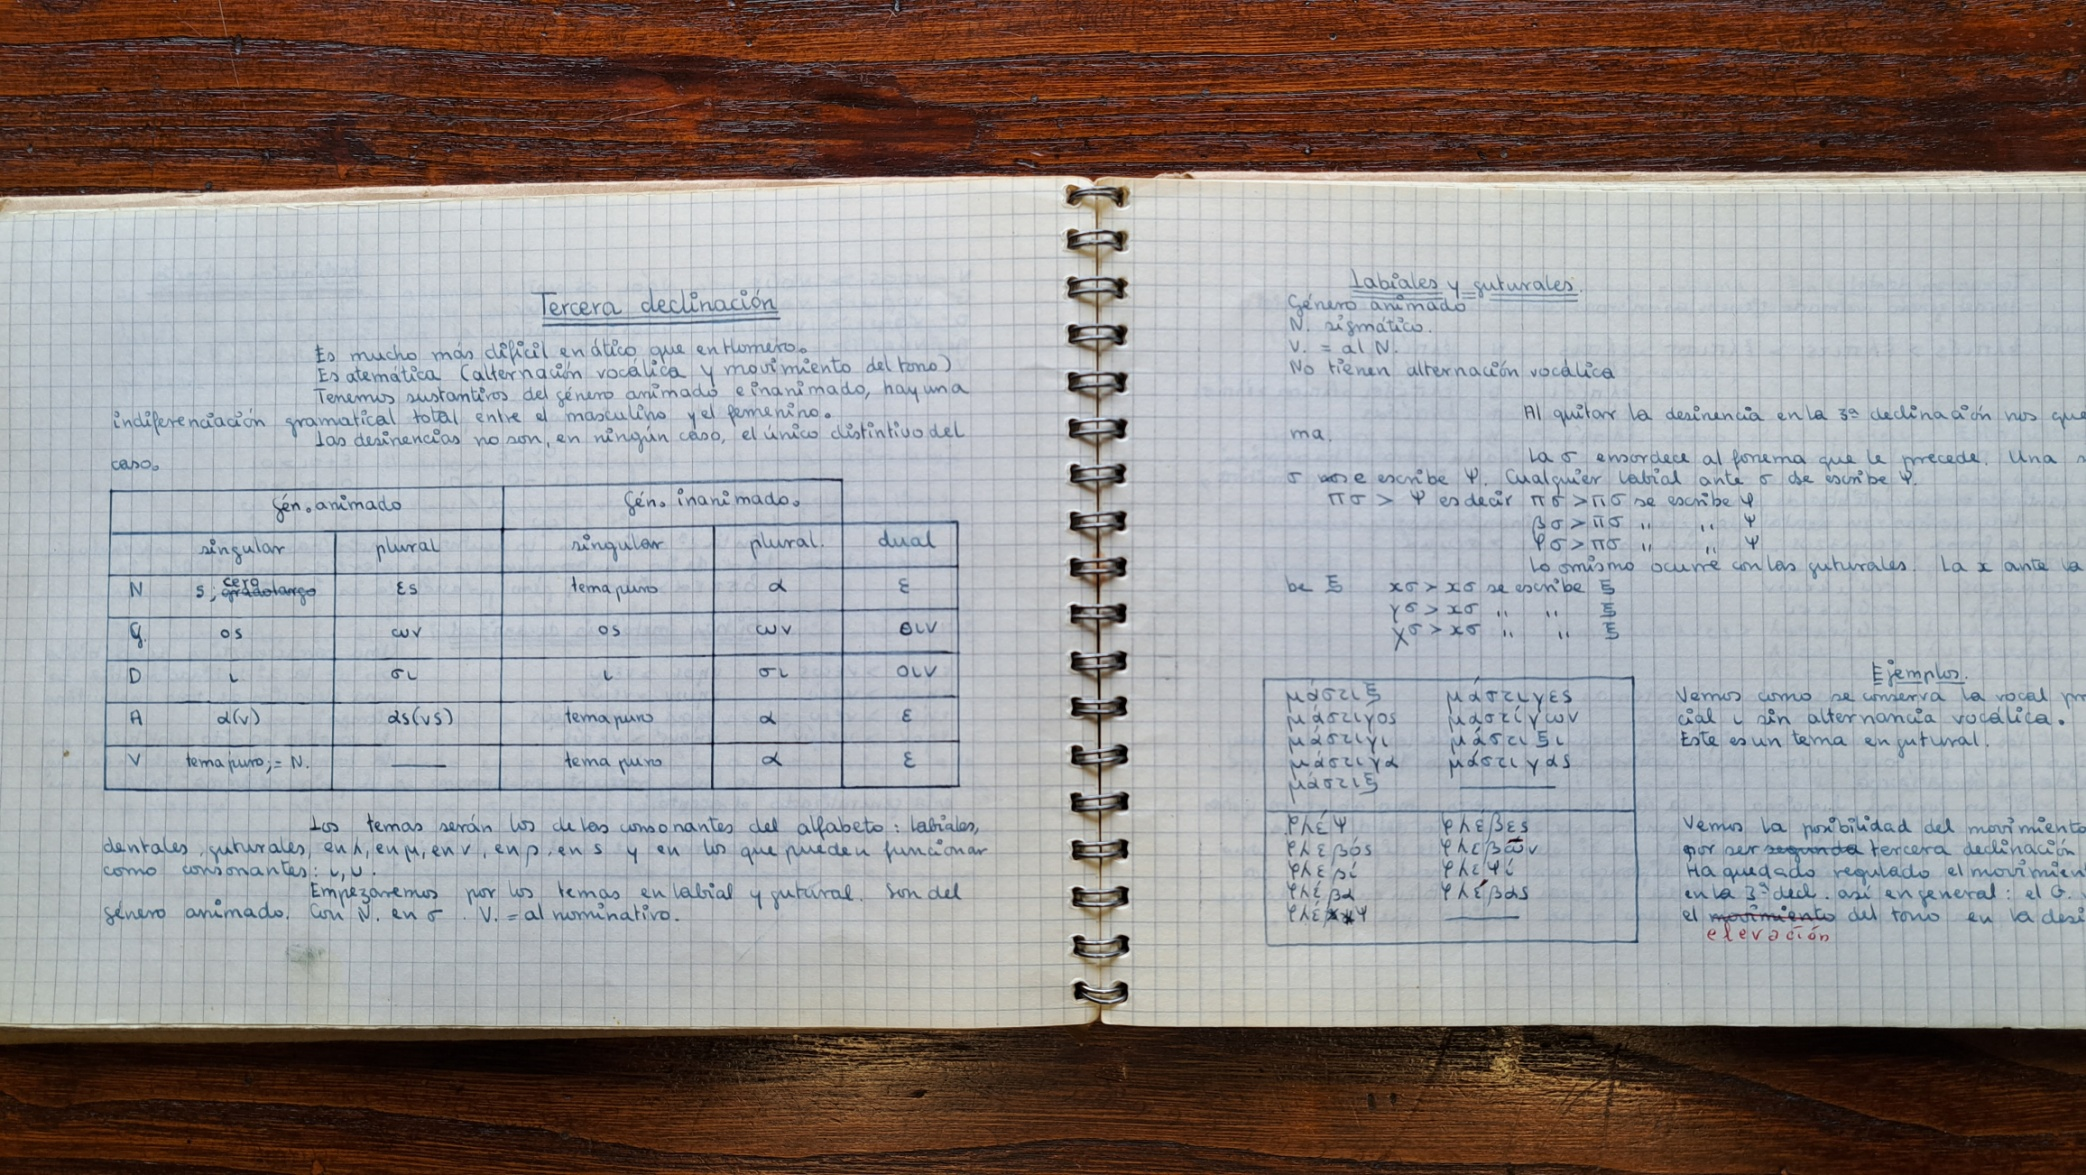 Tercera declinación
Es mucho más difícil en ático que en Homero.
Es atemática (alternación vocálica y movimiento del tono)
Tenemos sustantivos del género animado e inanimado, hay una
indiferenciación gramatical total entre el masculino y el femenino.
Las desinencias no son, en ningún caso, el único distintivo del
caso.
Gén. animado Gén. inanimado.
singular plural singular plural. dual
N s, cero grado largo ες tema puro α ε
G. os ων os ων οιν
D ι σι ι σι οιν
A α(ν) αs(νs) tema puro α ε
V tema puro, = N. — tema puro α ε
Los temas serán los de las consonantes del alfabeto: labiales,
dentales, guturales, en λ, en μ, en ν, en ρ, en s y en los que pueden funcionar
como consonantes: ι, υ.
Empezaremos por los temas en labial y gutural. Son del
género animado. Con N. en σ. V. = al nominativo.
Labiales y guturales.
Género animado
N. sigmático.
V. = al N.
No tienen alternación vocálica
Al quitar la desinencia en la 3ª declinación nos que
ma.
La σ ensordece al fonema que le precede. Una
σ se escribe Ψ. Cualquier labial ante σ se escribe Ψ.
πσ > Ψ es decir πσ > πσ se escribe Ψ
βσ > πσ " " Ψ
φσ > πσ " " Ψ
Lo mismo ocurre con las guturales. La κ ante la
be ξ κσ > κσ se escribe ξ
γσ > κσ " " ξ
χσ > κσ " " ξ
Ejemplos.
μάστιξ μάστιγες
μάστιγος μάστίγων
μάστιγι μάστιξι
μάστιγα μάστιγας
μάστιξ —
Vemos como se conserva la vocal pre
cial ι sin alternancia vocálica.
Este es un tema en gutural.
φλέψ φλέβες
φλεβός φλεβῶν
φλεβί φλεψί
φλέβα φλέβας
φλέψ —
Vemos la posibilidad del movimiento
por ser segunda tercera declinación
Ha quedado regulado el movimien
en la 3ª decl. así en general: el G.
el movimiento del tono en la desi
elevación